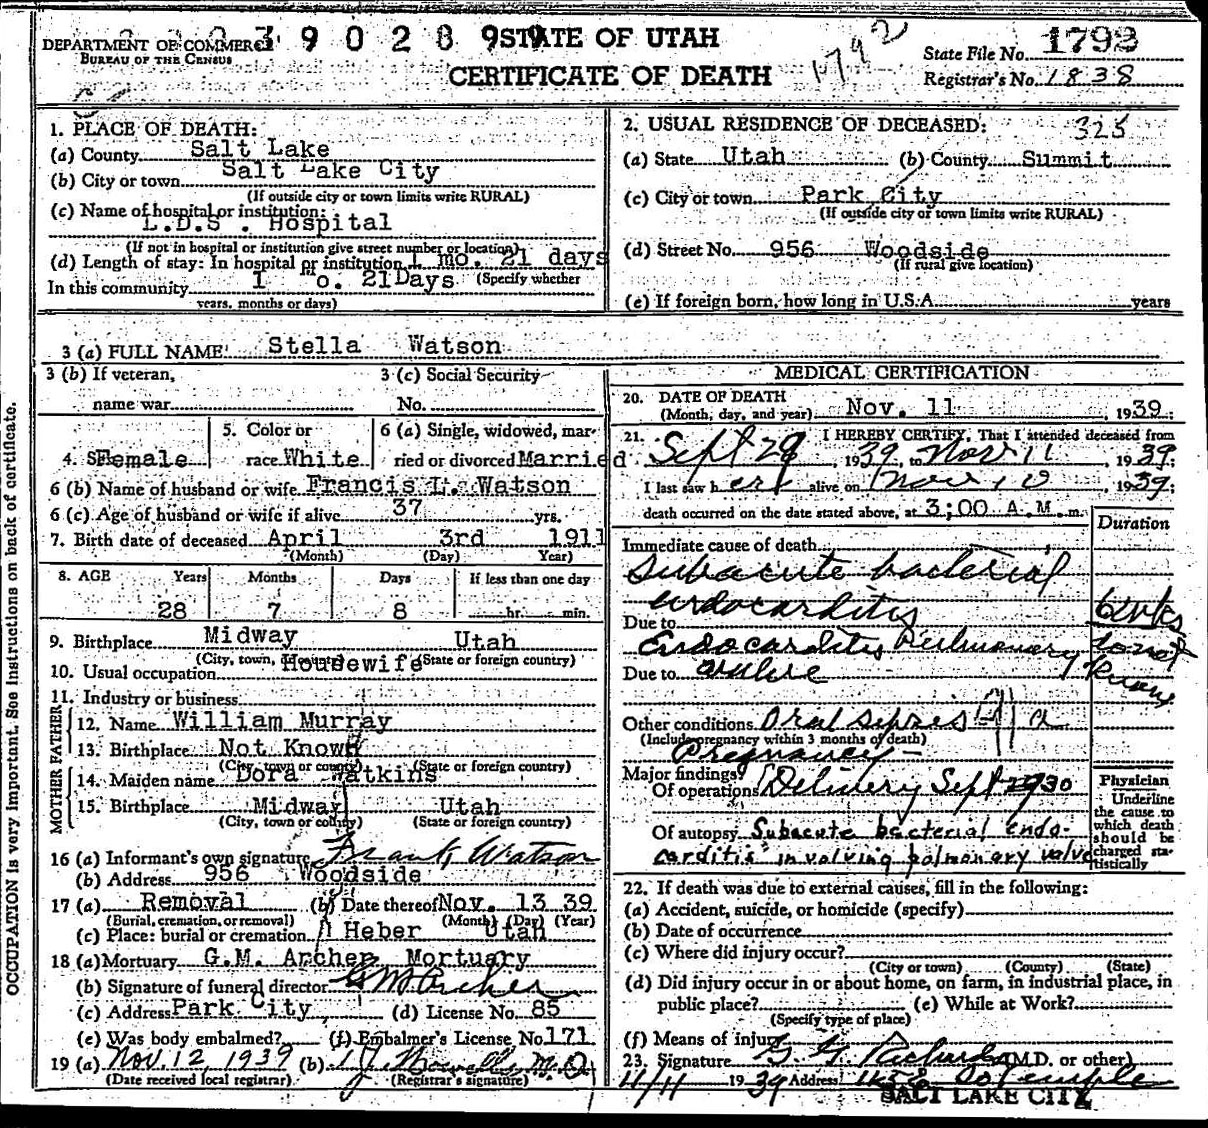 DEPARTMENT OF COMMERCE 3 9 0 2 8 9 9 STATE OF UTAH 1792 State File No. 1793
BUREAU OF THE CENSUS
CERTIFICATE OF DEATH Registrar's No. 1838
1. PLACE OF DEATH:
(a) County Salt Lake
(b) City or town Salt Lake City
(If outside city or town limits write RURAL)
(c) Name of hospital or institution:
L.D.S. Hospital
(If not in hospital or institution give street number or location)
(d) Length of stay: In hospital or institution 1 mo. 21 days
In this community 1 o. 21 Days (Specify whether
years, months or days)
2. USUAL RESIDENCE OF DECEASED: 325
(a) State Utah (b) County Summit
(c) City or town Park City
(If outside city or town limits write RURAL)
(d) Street No. 956 Woodside
(If rural give location)
(e) If foreign born, how long in U.S.A. years
3 (a) FULL NAME Stella Watson
3 (b) If veteran, 3 (c) Social Security
name war No.
4. Sex Female 5. Color or race White 6 (a) Single, widowed, married or divorced Married
6 (b) Name of husband or wife Francis L. Watson
6 (c) Age of husband or wife if alive 37 yrs.
7. Birth date of deceased April 3rd 1911
(Month) (Day) (Year)
8. AGE Years Months Days If less than one day
28 7 8 hr. min.
9. Birthplace Midway Utah
(City, town, or county) (State or foreign country)
10. Usual occupation Housewife
11. Industry or business
FATHER
12. Name William Murray
13. Birthplace Not Known
(City, town or county) (State or foreign country)
MOTHER
14. Maiden name Dora Watkins
15. Birthplace Midway Utah
(City, town or county) (State or foreign country)
16 (a) Informant's own signature Frank Watson
(b) Address 956 Woodside
17 (a) Removal (b) Date thereof Nov. 13 39
(Burial, cremation, or removal) (Month) (Day) (Year)
(c) Place: burial or cremation Heber Utah
18 (a) Mortuary G.M. Archer Mortuary
(b) Signature of funeral director G M Archer
(c) Address Park City (d) License No. 85
(e) Was body embalmed? (f) Embalmer's License No. 171
19 (a) Nov. 12, 1939 (b) M.D.
(Date received local registrar) (Registrar's signature)
MEDICAL CERTIFICATION
20. DATE OF DEATH
(Month, day, and year) Nov. 11, 1939;
21. I HEREBY CERTIFY, That I attended deceased from
Sept 28, 1939, to Nov 11, 1939;
I last saw her alive on Nov 10 1939;
death occurred on the date stated above, at 3;00 A.M. m.
Duration
Immediate cause of death
Subacute bacterial
endocarditis 6 wks
Due to
Endocarditis Pulmonary do not
Due to valve know
Other conditions Oral sepsis
(Include pregnancy within 3 months of death)
Pregnancy
Major findings:
Of operations Delivery Sept
Of autopsy Subacute bacterial endo-
carditis involving pulmonary valve
Physician
Underline
the cause to
which death
should be
charged sta-
tistically
22. If death was due to external causes, fill in the following:
(a) Accident, suicide, or homicide (specify)
(b) Date of occurrence
(c) Where did injury occur?
(City or town) (County) (State)
(d) Did injury occur in or about home, on farm, in industrial place, in
public place? (e) While at Work?
(Specify type of place)
(f) Means of injury
23. Signature G. G. Richards (M.D. or other)
11/11 1939 Address So Temple
SALT LAKE CITY
OCCUPATION is very important. See instructions on back of certificate.